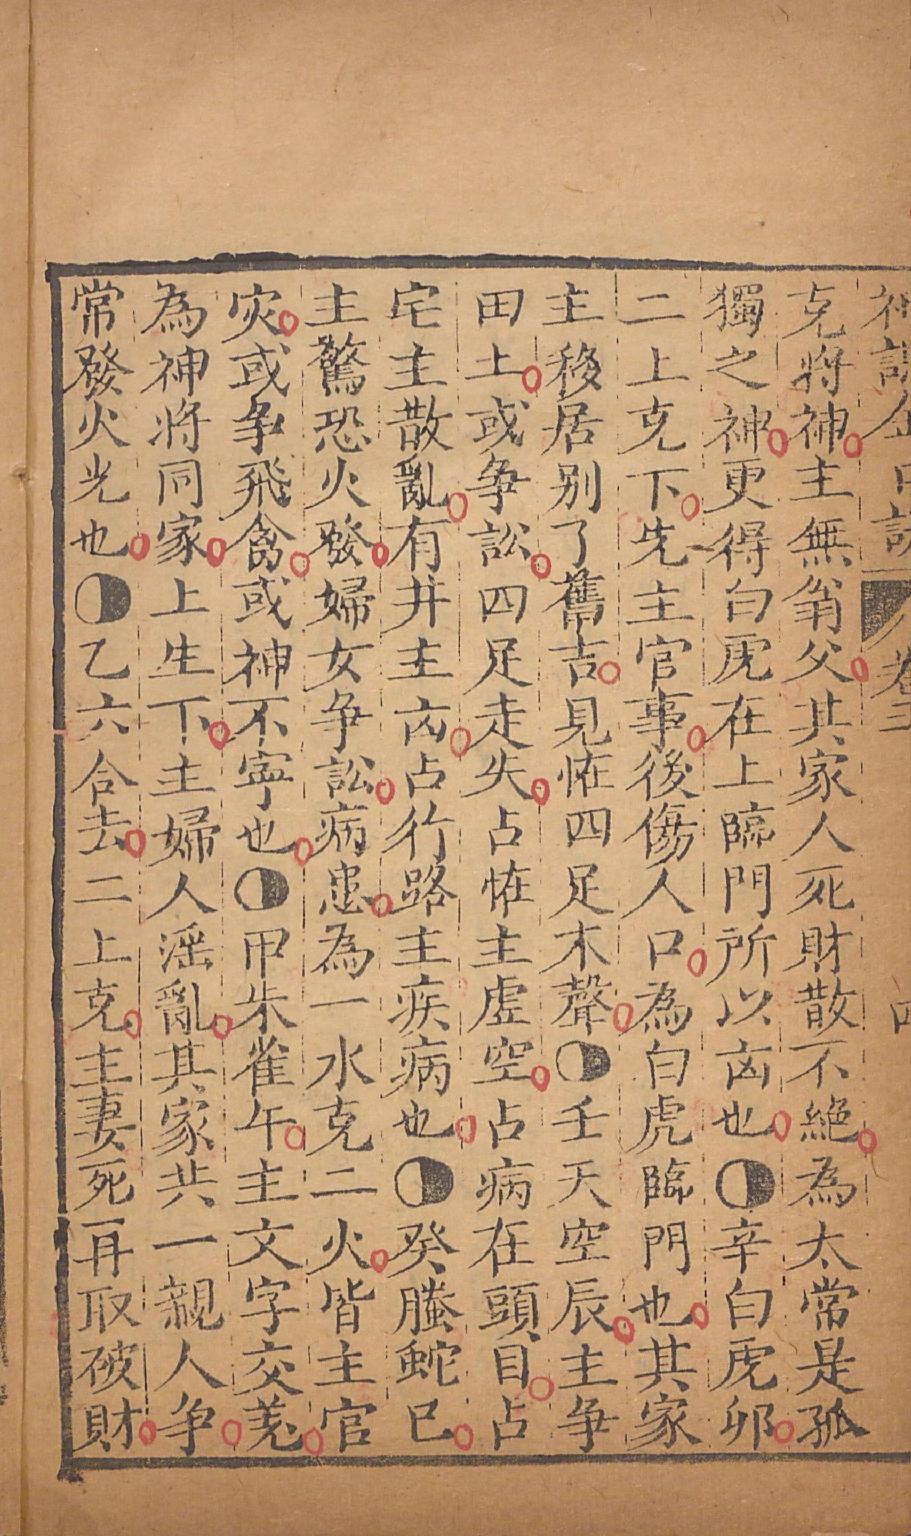 神課金口訣 卷二 四
克將神主無翁父其家人死財散不絕為太常是孤
獨之神更得白虎在上臨門所以凶也◑辛白虎卯
二上克下先主官事後傷人口為白虎臨門也其家
主移居别了舊吉見恠四足木聲◑壬天空辰主争
田土或争訟四足走失占恠主虛空占病在頭目占
宅主散亂有井主凶占行路主疾病也◑癸螣蛇巳
主驚恐火發婦女争訟病患為一水克二火皆主官
灾或争飛禽或神不寧也◑甲朱雀午主文字交羗
為神將同家上生下主婦人淫亂其家共一親人争
常發火光也◑乙六合去二上克主妻死再取破財